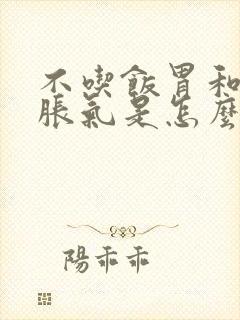 不喫飯胃和
脹氣是怎麼
陽乖乖